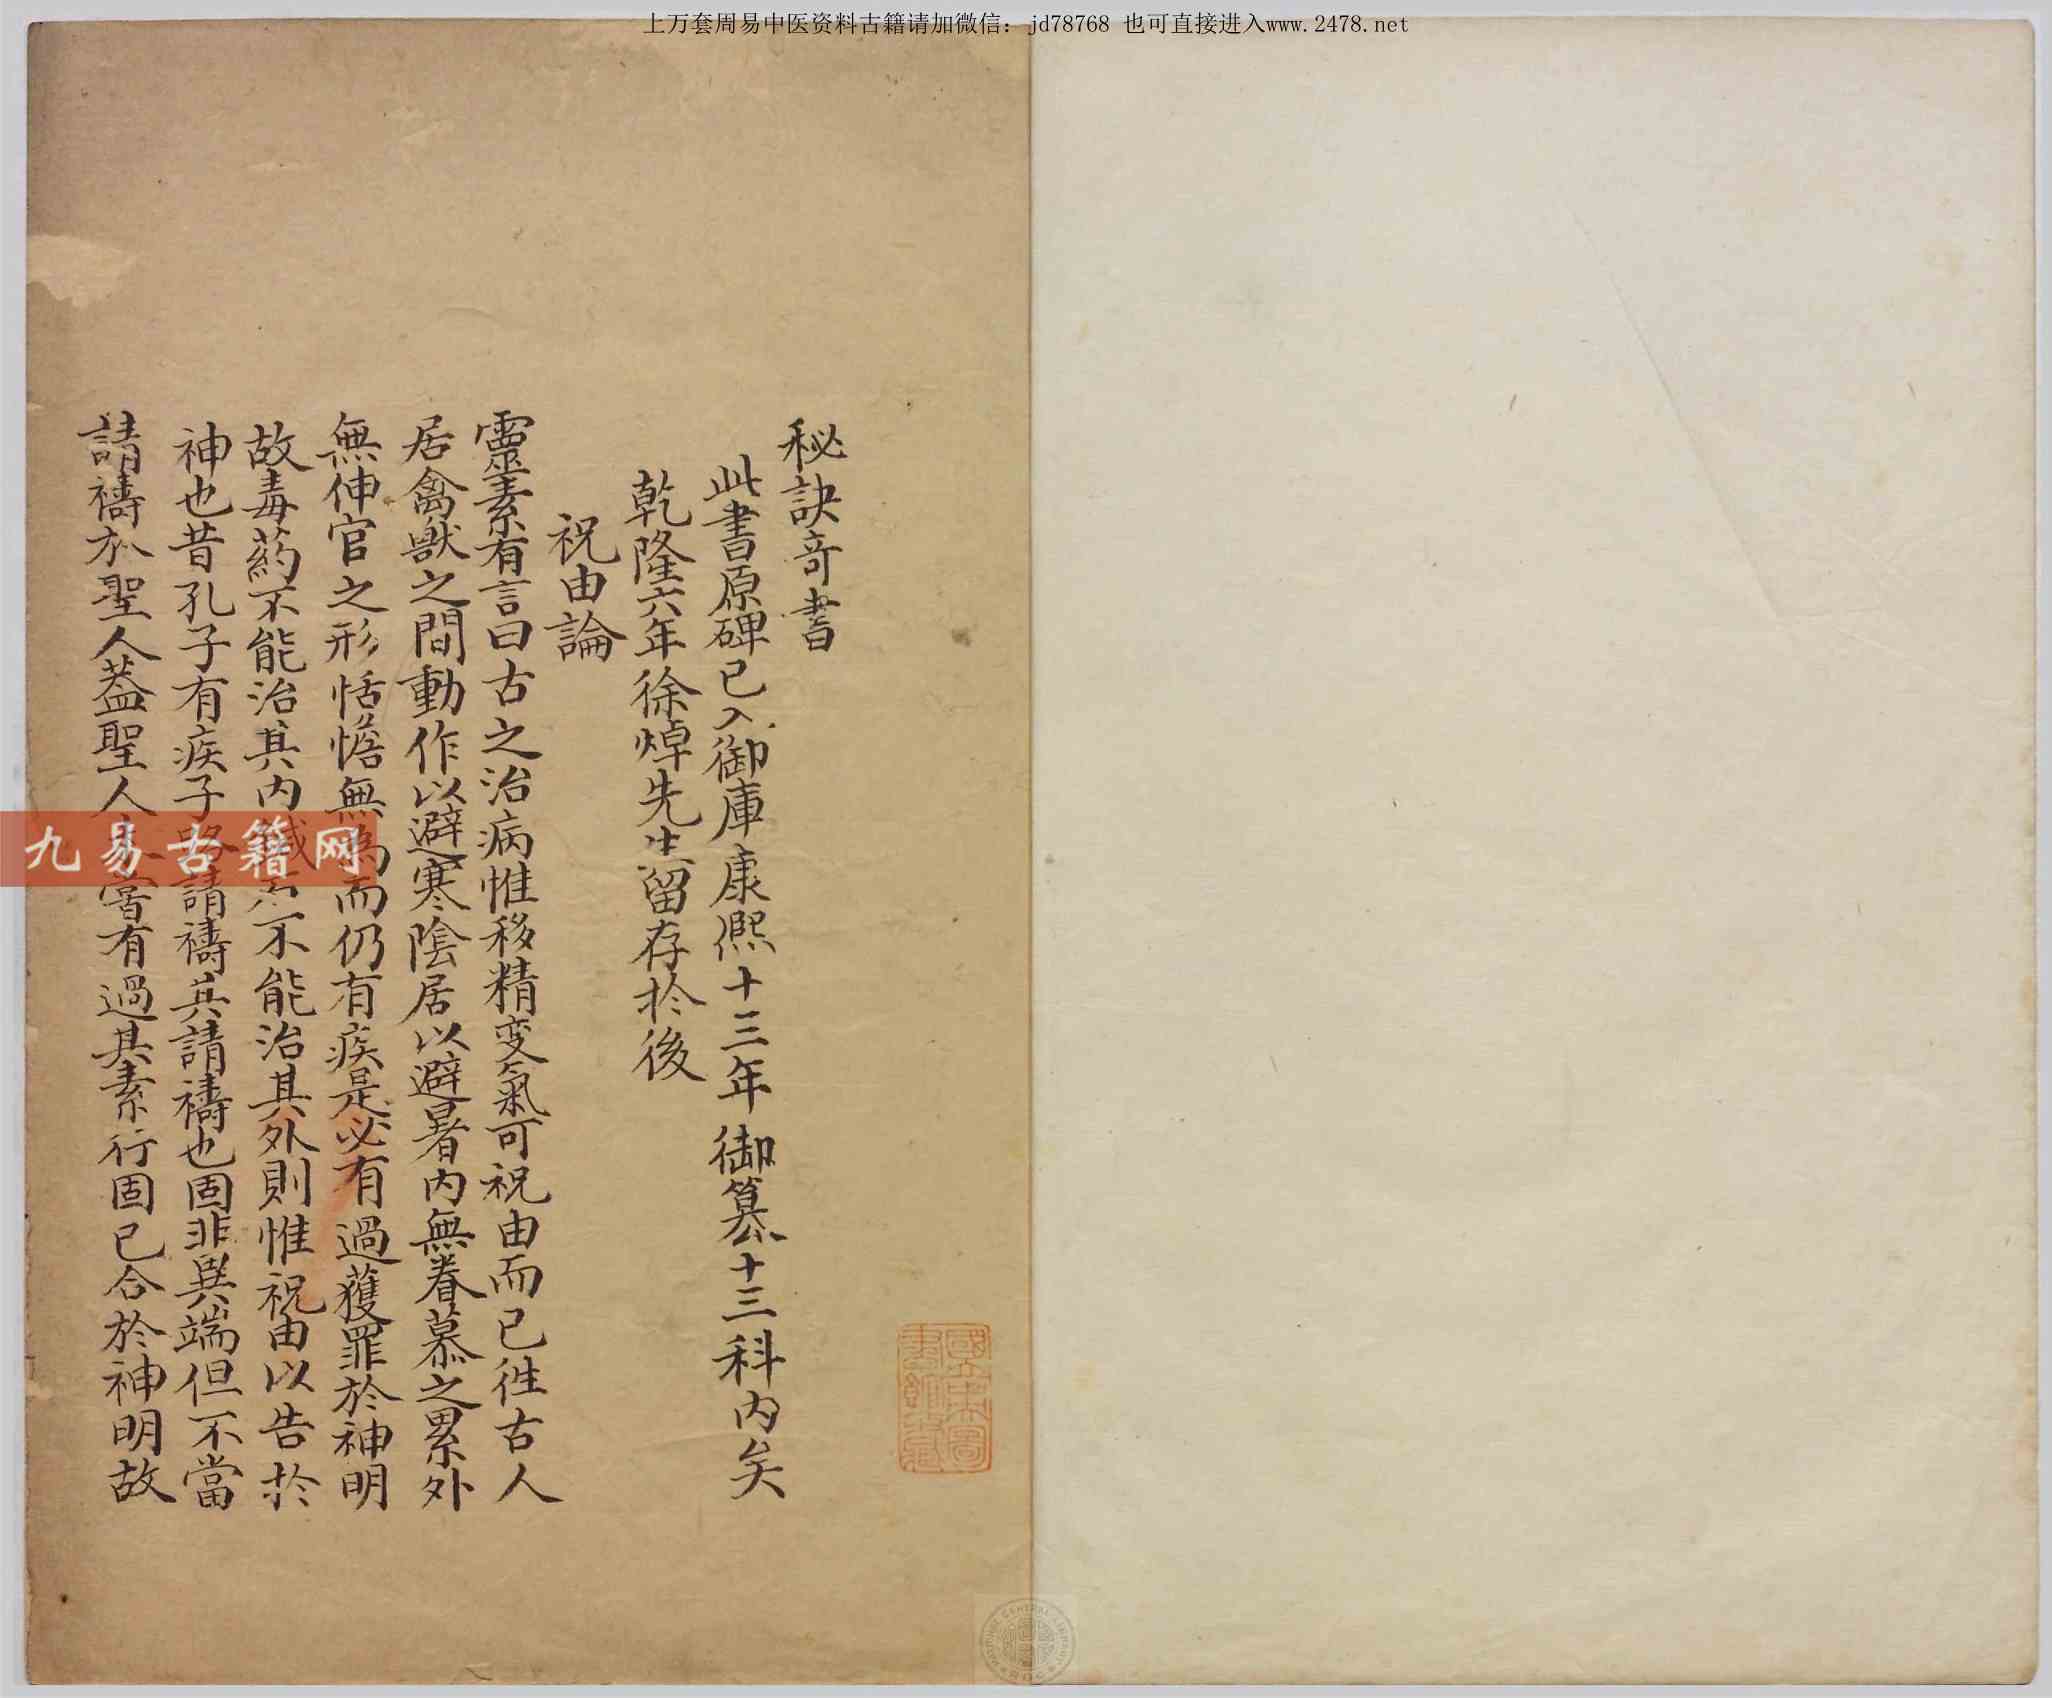 上万套周易中医资料古籍请加微信：jd78768 也可直接进入www.2478.net
秘訣竒書
此書原碑已入御庫康熙十三年御篡十三科内矣
乾隆六年徐焯先生留存於後
祝由論
靈素有言曰古之治病惟移精変氣可祝由而已徃古人
居禽獸之間動作以避寒陰居以避暑内無眷慕之累外
無伸官之形恬憺無為而仍有疾是必有過獲罪於神明
故毒葯不能治其内不能治其外則惟祝由以告於
神也昔孔子有疾子路請禱其請禱也固非異端但不當
請禱於聖人葢聖人嘗有過其素行固已合於神明故
九易古籍网
國立中央圖
書館收藏
NATIONAL CENTRAL LIBRARY ROC